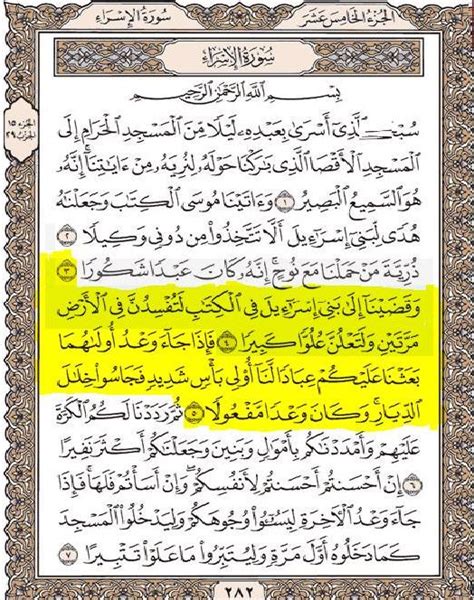 سُورَةُ الإِسْرَاءِ
الجُزْءُ الخَامِسَ عَشَرَ
الجزء ١٥
الحزب ٢٩
سُورَةُ الإِسْرَاءِ
بِسْمِ اللَّهِ الرَّحْمَٰنِ الرَّحِيمِ
سُبْحَٰنَ الَّذِي أَسْرَىٰ بِعَبْدِهِ لَيْلًا مِّنَ الْمَسْجِدِ الْحَرَامِ إِلَى
الْمَسْجِدِ الْأَقْصَا الَّذِي بَٰرَكْنَا حَوْلَهُ لِنُرِيَهُ مِنْ ءَايَٰتِنَا إِنَّهُ
هُوَ السَّمِيعُ الْبَصِيرُ ١ وَءَاتَيْنَا مُوسَى الْكِتَٰبَ وَجَعَلْنَٰهُ
هُدًى لِّبَنِي إِسْرَٰءِيلَ أَلَّا تَتَّخِذُوا مِن دُونِي وَكِيلًا ٢
ذُرِّيَّةَ مَنْ حَمَلْنَا مَعَ نُوحٍ إِنَّهُ كَانَ عَبْدًا شَكُورًا ٣
وَقَضَيْنَا إِلَىٰ بَنِي إِسْرَٰءِيلَ فِي الْكِتَٰبِ لَتُفْسِدُنَّ فِي الْأَرْضِ
مَرَّتَيْنِ وَلَتَعْلُنَّ عُلُوًّا كَبِيرًا ٤ فَإِذَا جَاءَ وَعْدُ أُولَىٰهُمَا
بَعَثْنَا عَلَيْكُمْ عِبَادًا لَّنَا أُولِي بَأْسٍ شَدِيدٍ فَجَاسُوا خِلَٰلَ
الدِّيَارِ وَكَانَ وَعْدًا مَّفْعُولًا ٥ ثُمَّ رَدَدْنَا لَكُمُ الْكَرَّةَ
عَلَيْهِمْ وَأَمْدَدْنَٰكُم بِأَمْوَٰلٍ وَبَنِينَ وَجَعَلْنَٰكُمْ أَكْثَرَ نَفِيرًا
٦ إِنْ أَحْسَنتُمْ أَحْسَنتُمْ لِأَنفُسِكُمْ وَإِنْ أَسَأْتُمْ فَلَهَا فَإِذَا
جَاءَ وَعْدُ الْءَاخِرَةِ لِيَسُـُٔوا وُجُوهَكُمْ وَلِيَدْخُلُوا الْمَسْجِدَ
كَمَا دَخَلُوهُ أَوَّلَ مَرَّةٍ وَلِيُتَبِّرُوا مَا عَلَوْا تَتْبِيرًا ٧
٢٨٢